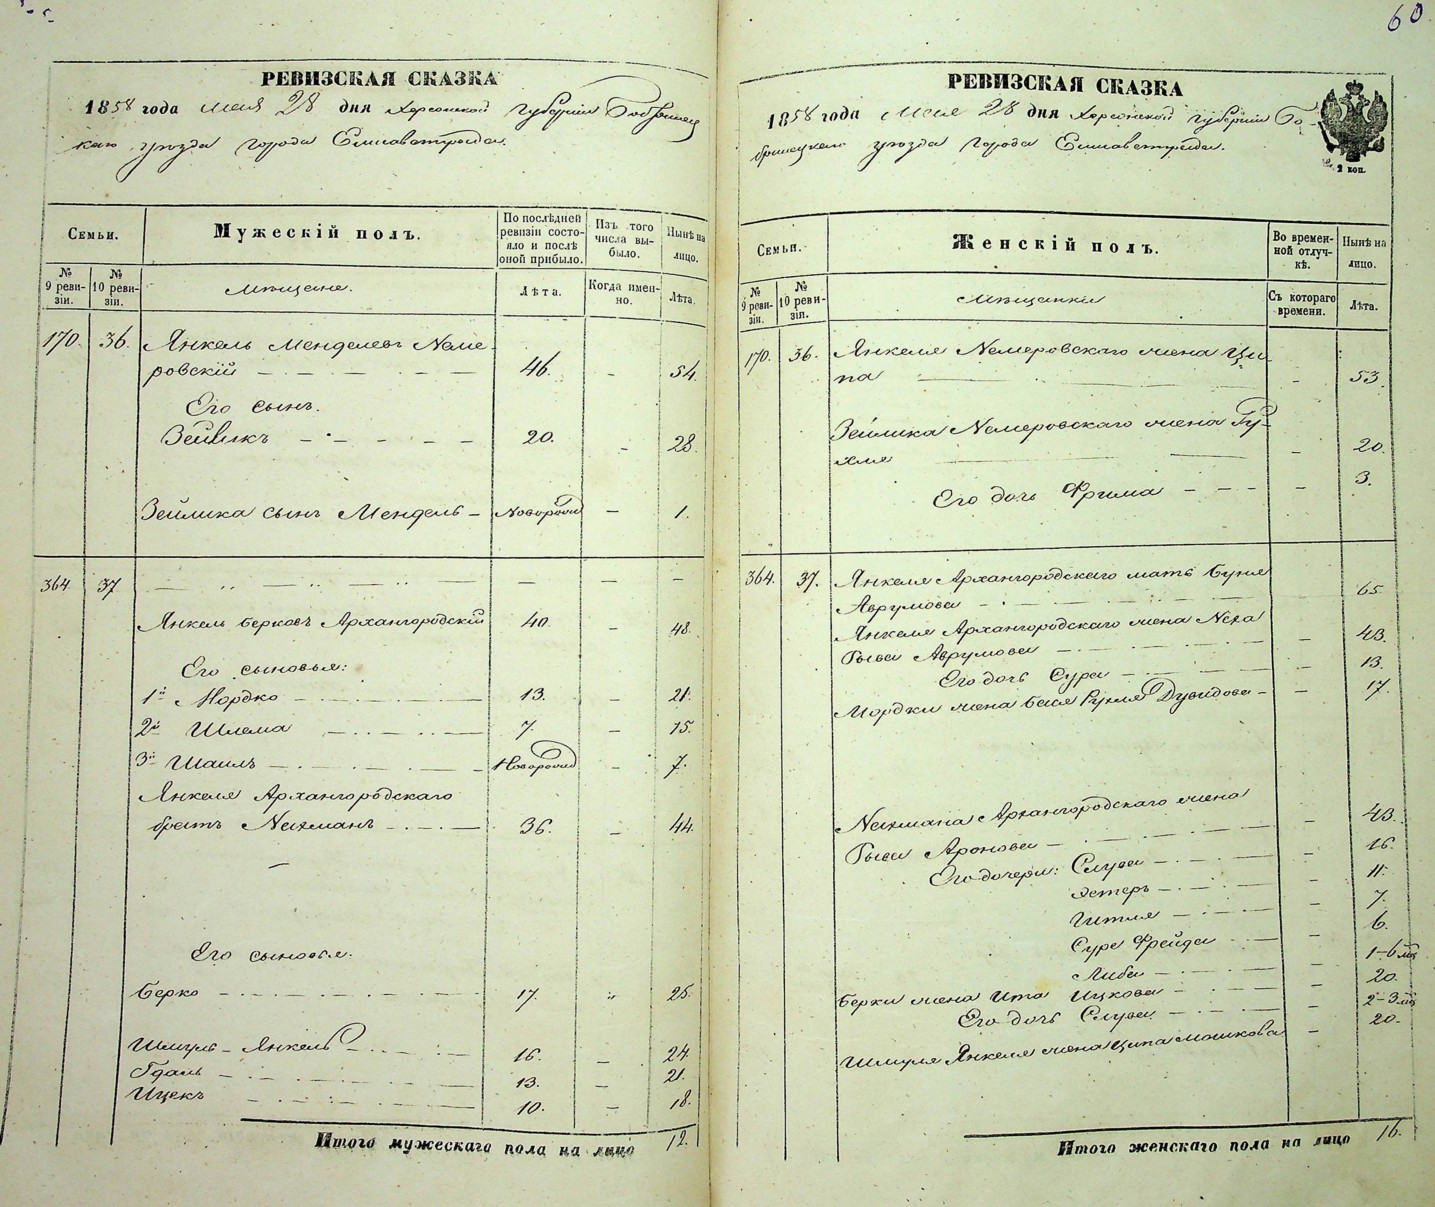 60
РЕВИЗСКАЯ СКАЗКА
1858 года мая 28 дня Херсонской губернии Бобринец
каго уезда города Елисаветграда.
Семьи.
Мужескій полъ.
По послѣдней ревизіи состояло и послѣ оной прибыло.
Изъ того числа выбыло.
Нынѣ на лицо.
№ 9 ревизіи.
№ 10 ревизіи.
Мѣщане.
Лѣта.
Когда именно.
Лѣта.
170. 36. Янкель Менделевъ Неме-
ровскій — 46. — 54.
Его сынъ.
Зейликъ — 20. — 28.
Зейлика сынъ Мендель — Новорожд — 1.
364 37 — „ — „ — „ — — — —
Янкель Берковъ Архангородскій 40. — 48.
Его сыновья:
1й Мордко — 13. — 21.
2й Шлема — 7. — 15.
3й Шаилъ — Новорожд — 7.
Янкеля Архангородскаго
братъ Нахманъ — 36. — 44.
—
Его сыновья:
Берко — 17. „ 25.
Шмуль-Янкель — 16. — 24.
Гдаль — 13. — 21.
Ицекъ — 10. — 18.
Итого мужескаго пола на лицо 12.
РЕВИЗСКАЯ СКАЗКА
1858 года мая 28 дня Херсонской губерніи Бо-
бринецкаго уезда города Елисаветграда.
2 коп.
Семьи.
Женскій полъ.
Во временной отлучкѣ.
Нынѣ на лицо.
№ 9 ревизіи.
№ 10 ревизія.
Мѣщанки
Съ котораго времени.
Лѣта.
170. 36. Янкеля Немеровскаго жена Ци-
па — — 53.
Зейлика Немеровскаго жена Ру-
хля — — 20.
Его дочь Фрима — — 3.
364. 37. Янкеля Архангородскаго мать Буня
Аврумова — 65
Янкеля Архангородскаго жена Неха
Рыва Аврумова — — 43.
Его дочь Сура — — 13.
Мордки жена Бася Рухля Дувидова — — 17.
Нахмана Архангородскаго жена
Рыва Аронова — — 43.
Его дочери: Слува — — 16.
Эстеръ — — 11.
Гитля — — 7.
Сура Фрейда — — 6.
Либа — — 1-6 мѣ
Берки жена Ита Ицкова — — 20.
Его дочь Слува — — 2-3 мѣ
Шмуля Янкеля жена Ципа Мошкова — 20.
Итого женскаго пола на лицо 16.